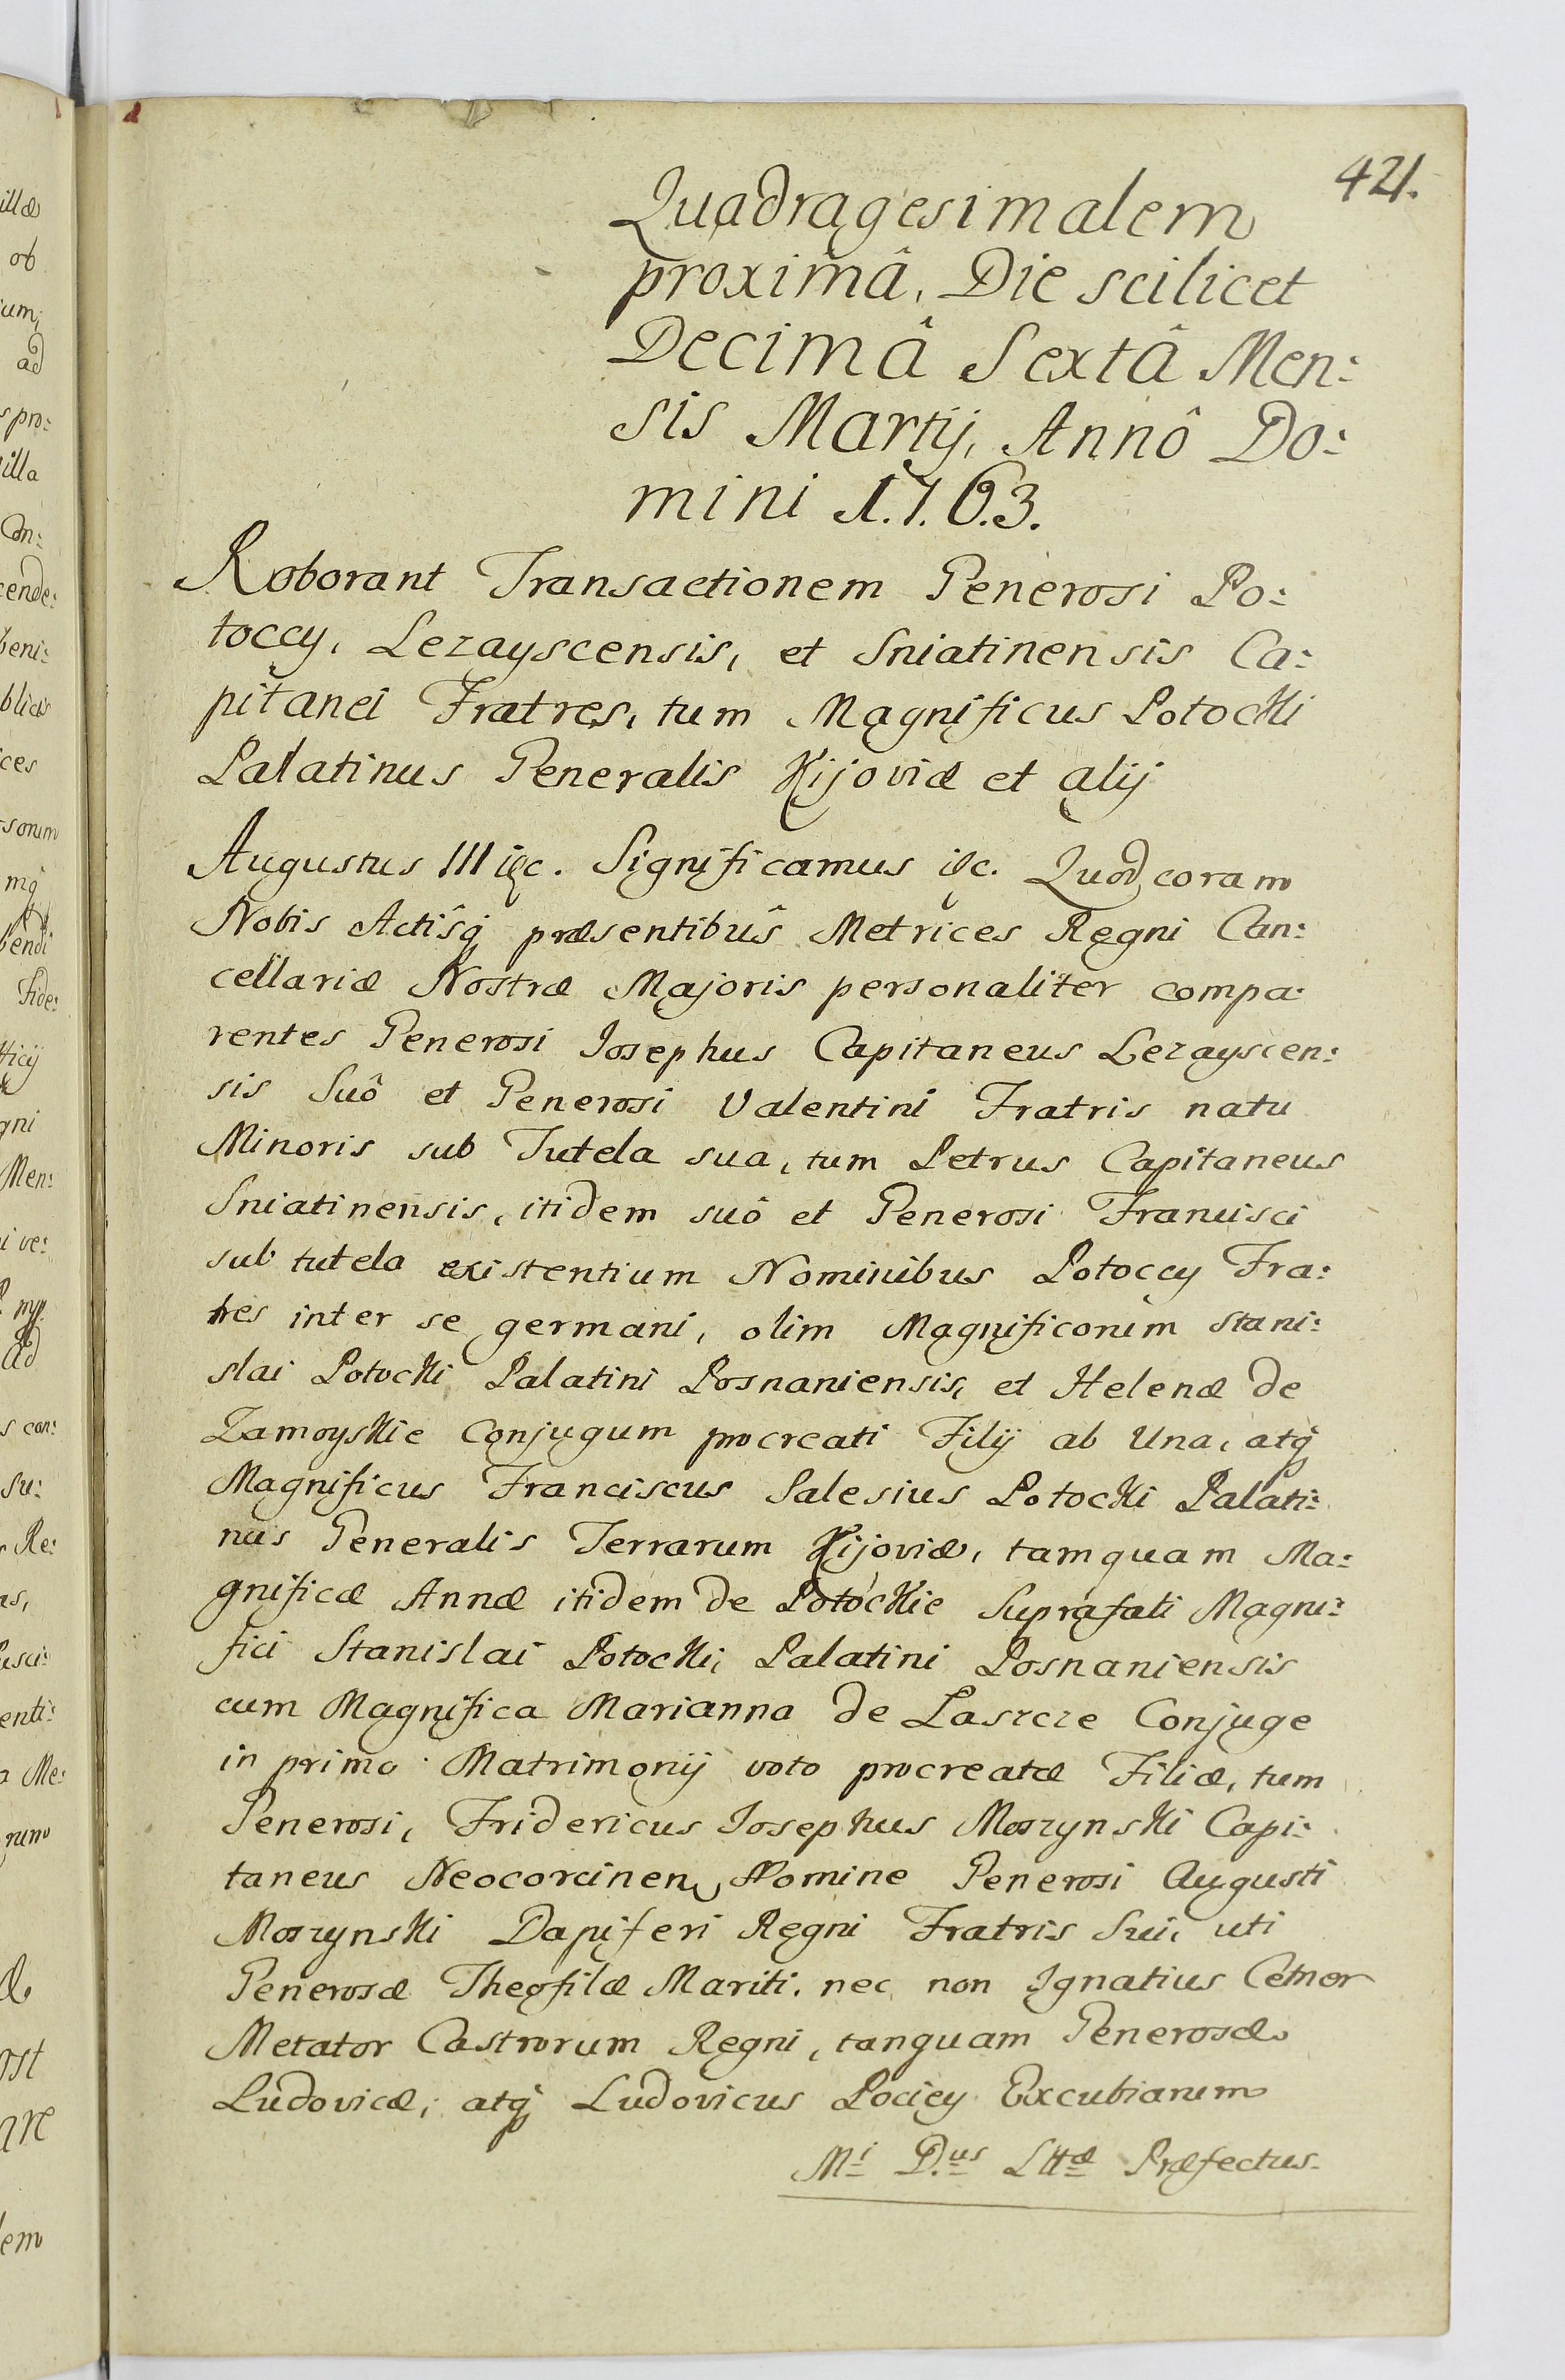 421.
Quadragesimalem
proximâ, Die scilicet
Decimâ Sextâ Men:
sis Martij, Annô Do:
mini 1.7.6.3.
Roborant Transactionem Generosi Po:
toccy, Lezayscensis, et Sniatinensis Ca:
pitanei Fratres, tum Magnificus Potocki
Palatinus Generalis Kijoviæ et alij
Augustus III &c. Significamus &c. Quod coram
Nobis Actisq̃ præsentibus Metrices Regni Can:
cellariæ Nostræ Majoris personaliter compa:
rentes Generosi Josephus Capitaneus Lezayscen:
sis Suô et Generosi Valentini Fratris natu
Minoris sub Tutela sua, tum Petrus Capitaneus
Sniatinensis, itidem suô et Generosi Francisci
sub tutela existentium Nominibus Potoccy Fra:
tres inter se germani, olim Magnificorum Stani:
slai Potocki Palatini Posnaniensis, et Helenæ de
Zamoyskie Conjugum procreati Filij ab Una, atq̃
Magnificus Franciscus Salesius Potocki Palati:
nus Generalis Terrarum Kijoviæ, tamquam Ma:
gnificæ Annæ itidem de Potockie Suprafati Magni:
fici Stanislai Potocki, Palatini Posnaniensis
cum Magnifica Marianna de Laszcze Conjuge
in primo Matrimonij voto procreatæ Filiæ, tum
Generosi, Fridericus Josephus Moszynski Capi:
taneus Neocorcinen, Nomine Generosi Augusti
Moszynski Dapiferi Regni Fratris Sui, uti
Generosæ Theofilæ Mariti, nec non Ignatius Cetner
Metator Castrorum Regni, tanquam Generosæ
Ludovicæ, atq̃ Ludovicus Pociey Excubiarum
M.i D.us Littæ Præfectus.